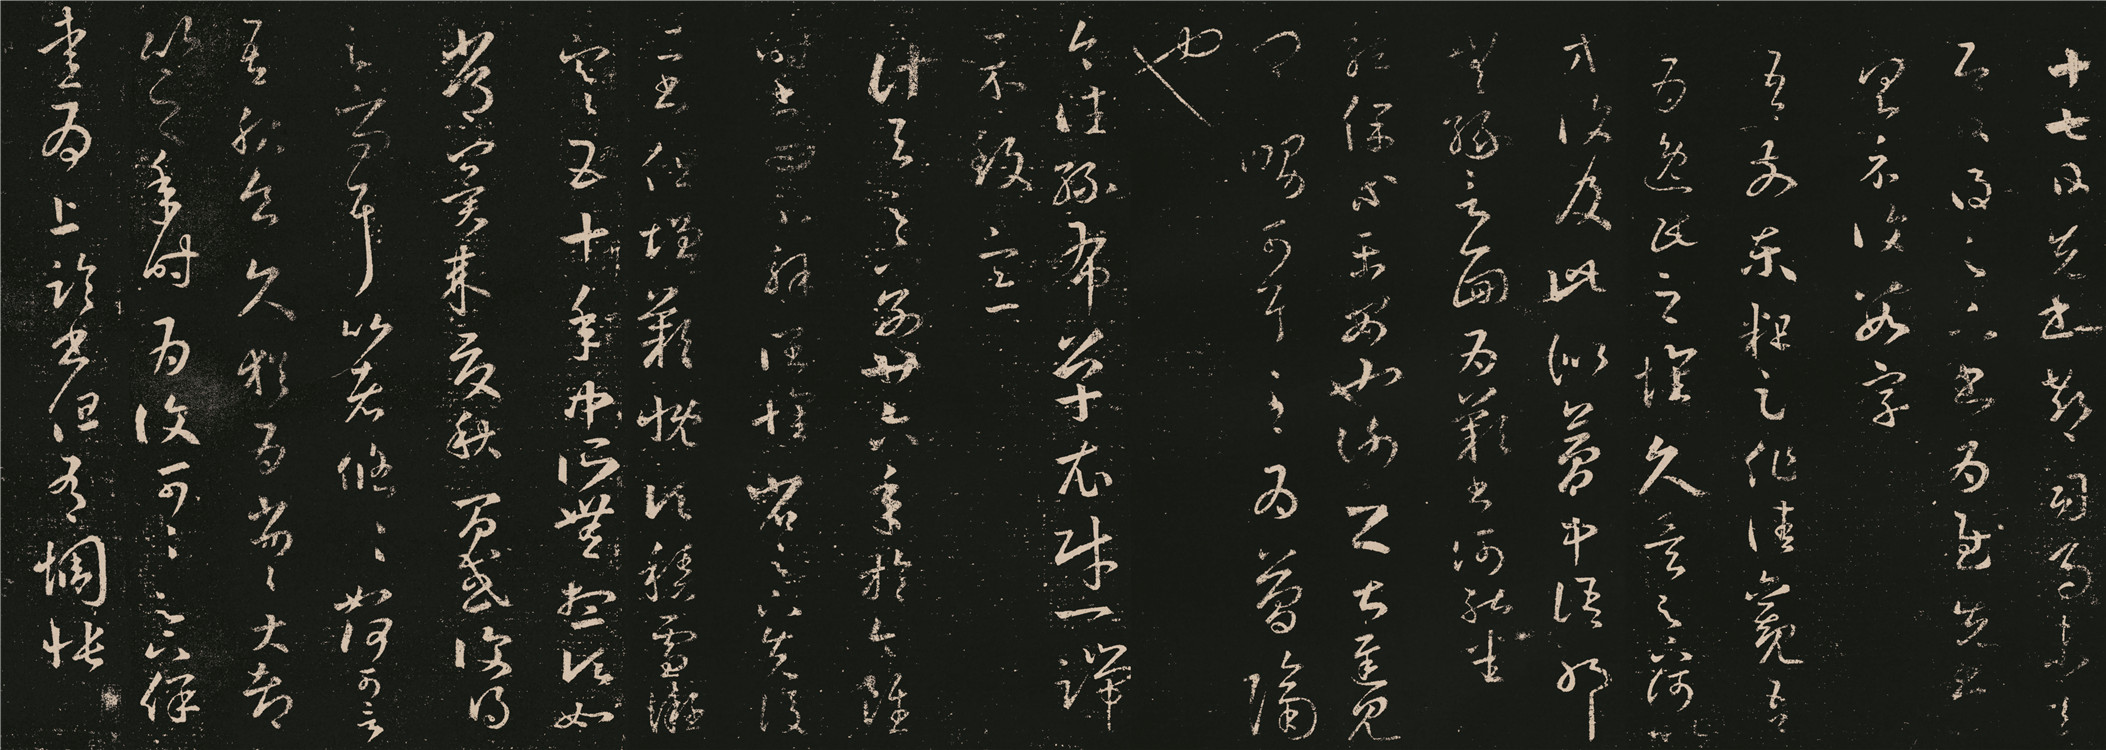 十七日先書郗司馬未去
即日得足下書為慰先書
以具示復數字
吾前東粗足作佳觀吾
為逸民之懷久矣足下何以
方復及此似夢中語耶
無緣言面為歎書何能悉
龍保等平安也謝之甚遲見
卿舅可耳至為簡隔
也
今往絲布單衣財一端
示致意
計與足下別廿六年於今雖
時書問不解闊懷省足下先後
二書但增歎慨頃積雪凝
寒五十年中所無想頃如
常冀來夏秋間或復得
足下問耳比者悠悠如何可言
吾服食久猶為劣劣大都
比之年時為復可可足下保
愛為上臨書但有惆悵